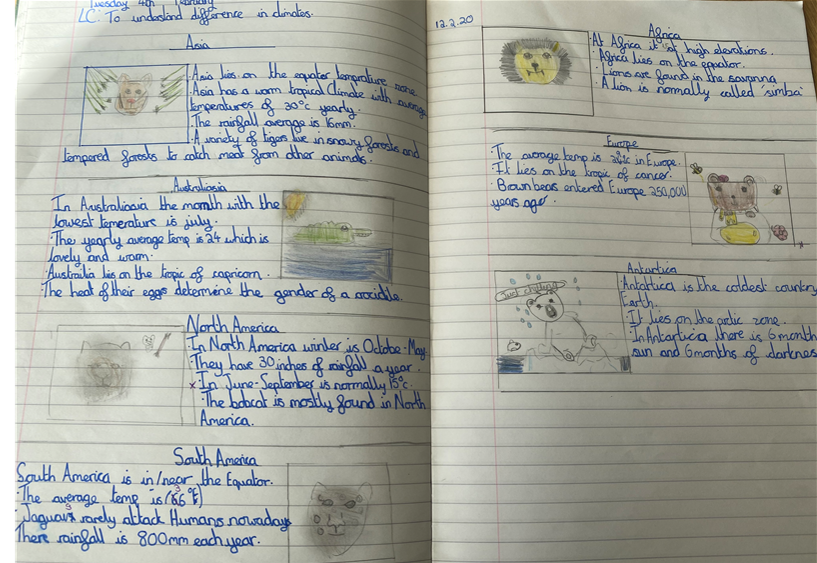 Tuesday 4th February
LC: To understand difference in climates.
Asia
·Asia lies on the equater temprature zone
·Asia has a warm tropical climate with average
temperatures of 30°c yearly.
·The rainfall average is 16mm.
·A variety of tigers live in snowy forests and
tempered forests to catch meat from other animals.
Australiasia
In Australiasia the month with the
lowest temerature is july.
·The yearly average temp is 24 which is
lovely and warm.
·Austrailia lies on the tropic of capricorn.
·The heat of their eggs determine the gender of a crocidile.
North America
·In North America winter is Octobe-May.
·They have 30 inches of rainfall a year.
x·In June-September is normally 15°c.
·The bobcat is mostly found in North
America.
South America
South America is in/near the Equator.
·The average temp is (86°F)
·Jaguars rarely attack Humans nowadays
There rainfall is 800mm each year.
12.2.20
Africa
·At Africa it is at high elevations.
·Africa lies on the equator.
·Lions are found in the savanna
·A lion is normally called 'simba'
Europe
·The average temp is in Europe.
·It lies on the tropic of cancer.
·Brown bears entered Europe 250,000
years ago.
Antartica
Just chilling
Antartica is the coldest country
Earth.
·It lies on the artic zone.
In Antartica there is 6 month
sun and 6 months of darknes